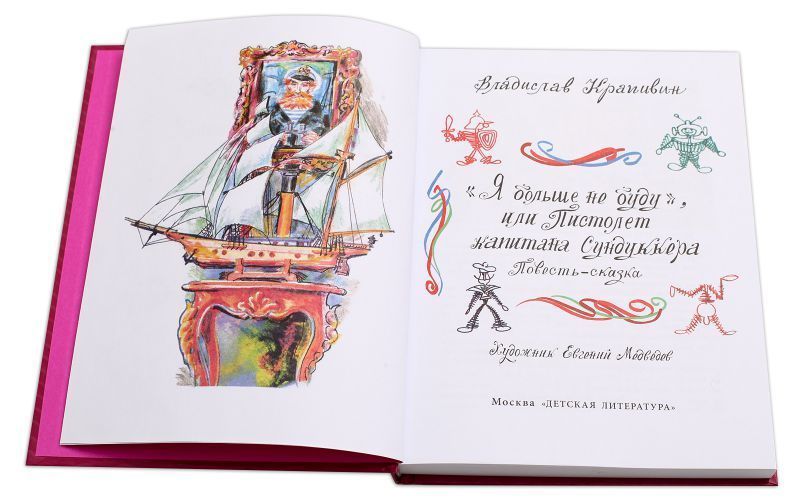 Владислав Крапивин
"Я больше не буду",
или Пистолет
капитана Сундуккера
Повесть-сказка
Художник Евгений Медведев
Москва «ДЕТСКАЯ ЛИТЕРАТУРА»